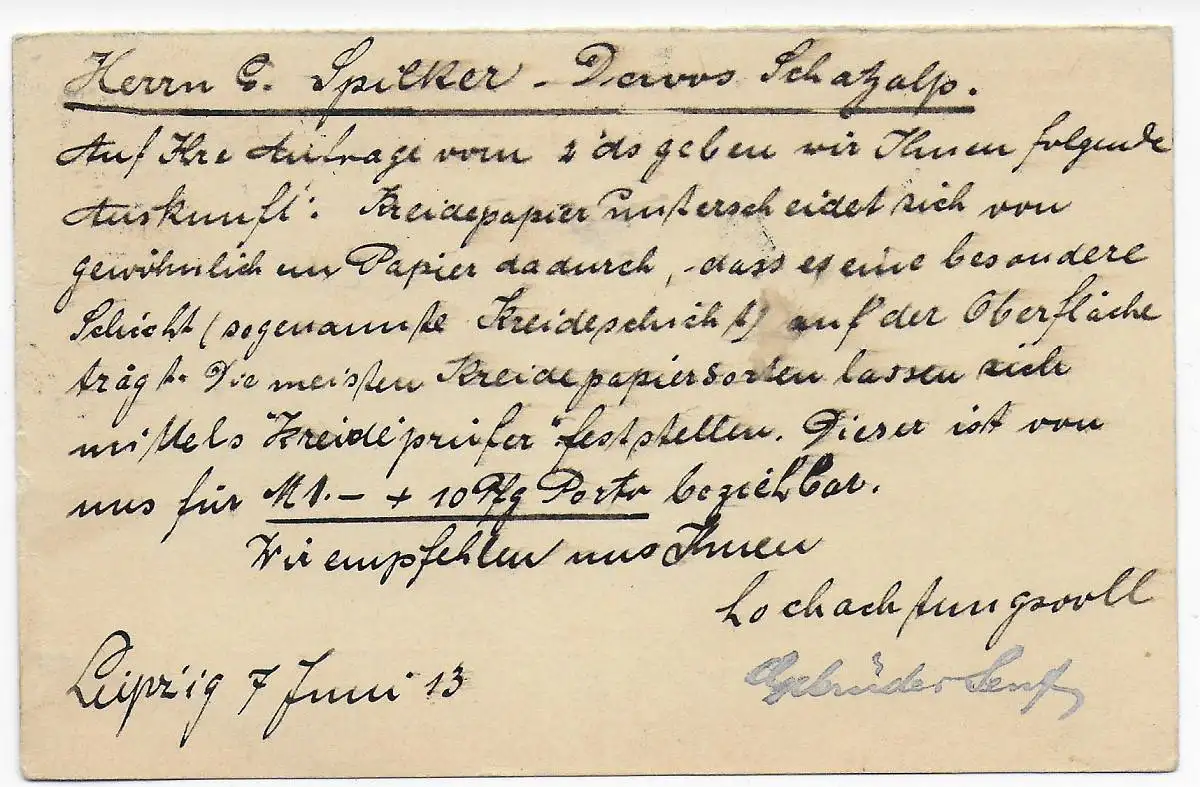 Herrn G. Spilker - Davos Schatzalp.
Auf Ihre Anfrage vom 2 ds geben wir Ihnen folgende
Auskunft: Kreidepapier unterscheidet sich von
gewöhnlichem Papier dadurch, dass es eine besondere
Schicht (sogenannte Kreideschicht) auf der Oberfläche
trägt. Die meisten Kreidepapiersorten lassen sich
mittels "Kreideprüfer" feststellen. Dieser ist von
uns für M 1.- + 10 Pfg Porto beziehbar.
Wir empfehlen uns Ihnen
hochachtungsvoll
Leipzig 7 Juni 13
Gebrüder Senf